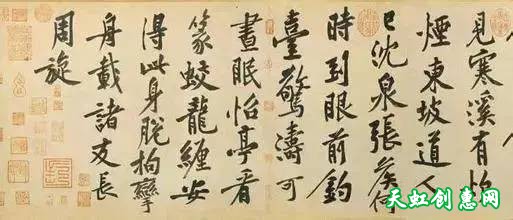 見寒溪有炊
煙東坡道人
已沈泉張侯何
時到眼前釣
臺驚濤可
晝眠怡亭看
篆蛟龍纏安
得此身脫拘攣
舟載諸友長
周旋
天虹创意网